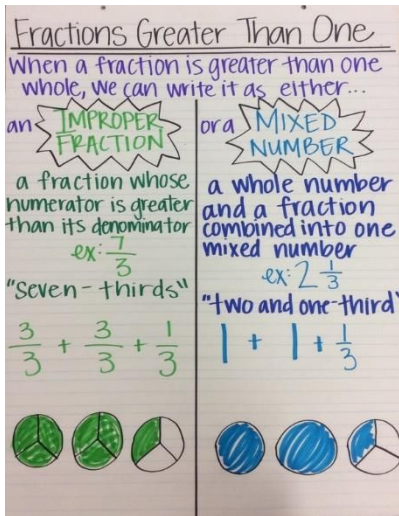 Fractions Greater Than One
When a fraction is greater than one
whole, we can write it as either...
an IMPROPER
FRACTION
a fraction whose
numerator is greater
than its denominator
ex: 7/3
"seven-thirds"
3/3 + 3/3 + 1/3
or a MIXED
NUMBER
a whole number
and a fraction
combined into one
mixed number
ex: 2 1/3
"two and one-third"
1 + 1 + 1/3